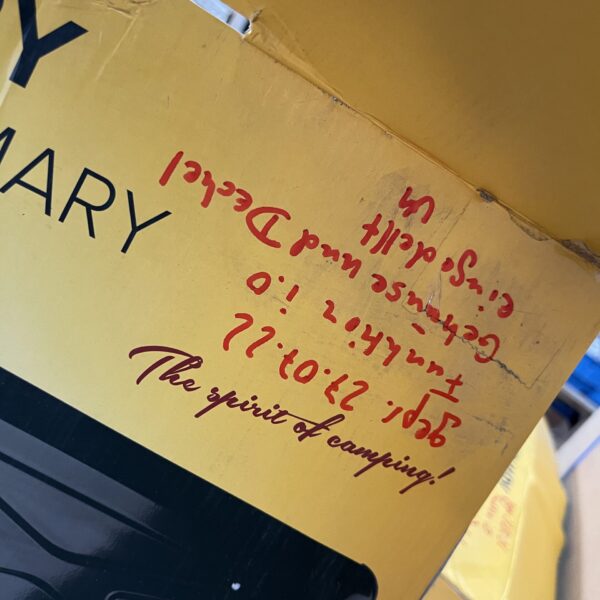 MARY
The spirit of camping!
gepr. 27.07.22
Funktion i.O
Gehäuse und Deckel
eingedellt